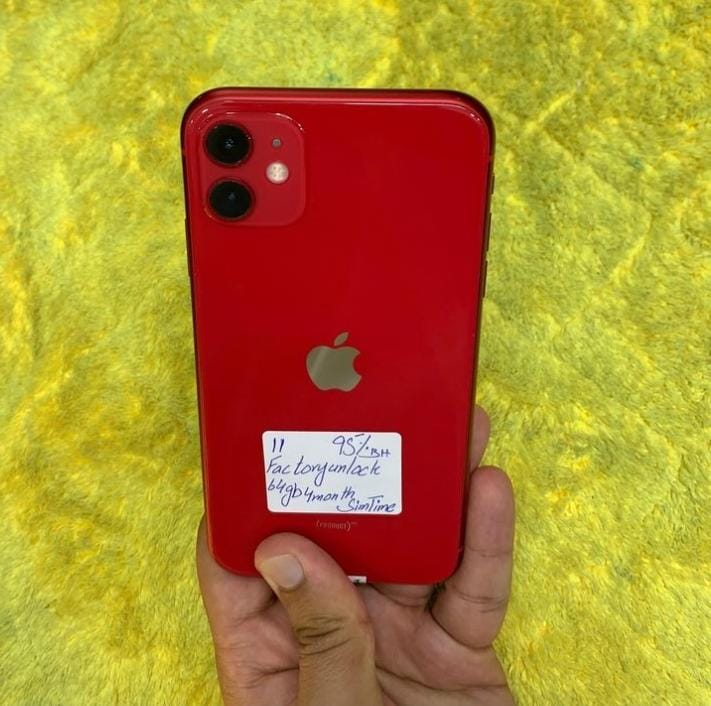 11 95%.BH
Factory unlock
64gb 4month
SimTime
(PRODUCT)